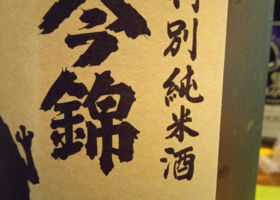 特別純米酒
今錦